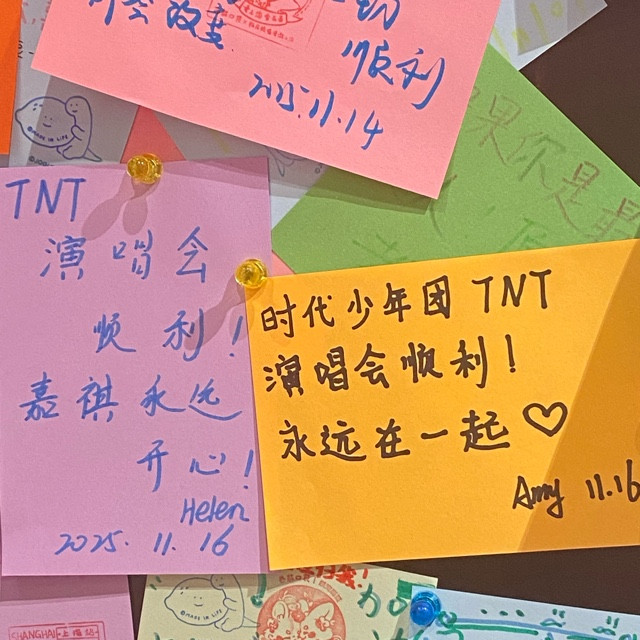 一切
顺利
2025.11.14
TNT
演唱会
顺利!
嘉祺永远
开心!
Helen
2025. 11. 16
时代少年团 TNT
演唱会顺利!
永远在一起♡
Amy 11.16
果你是
SHANGHAI